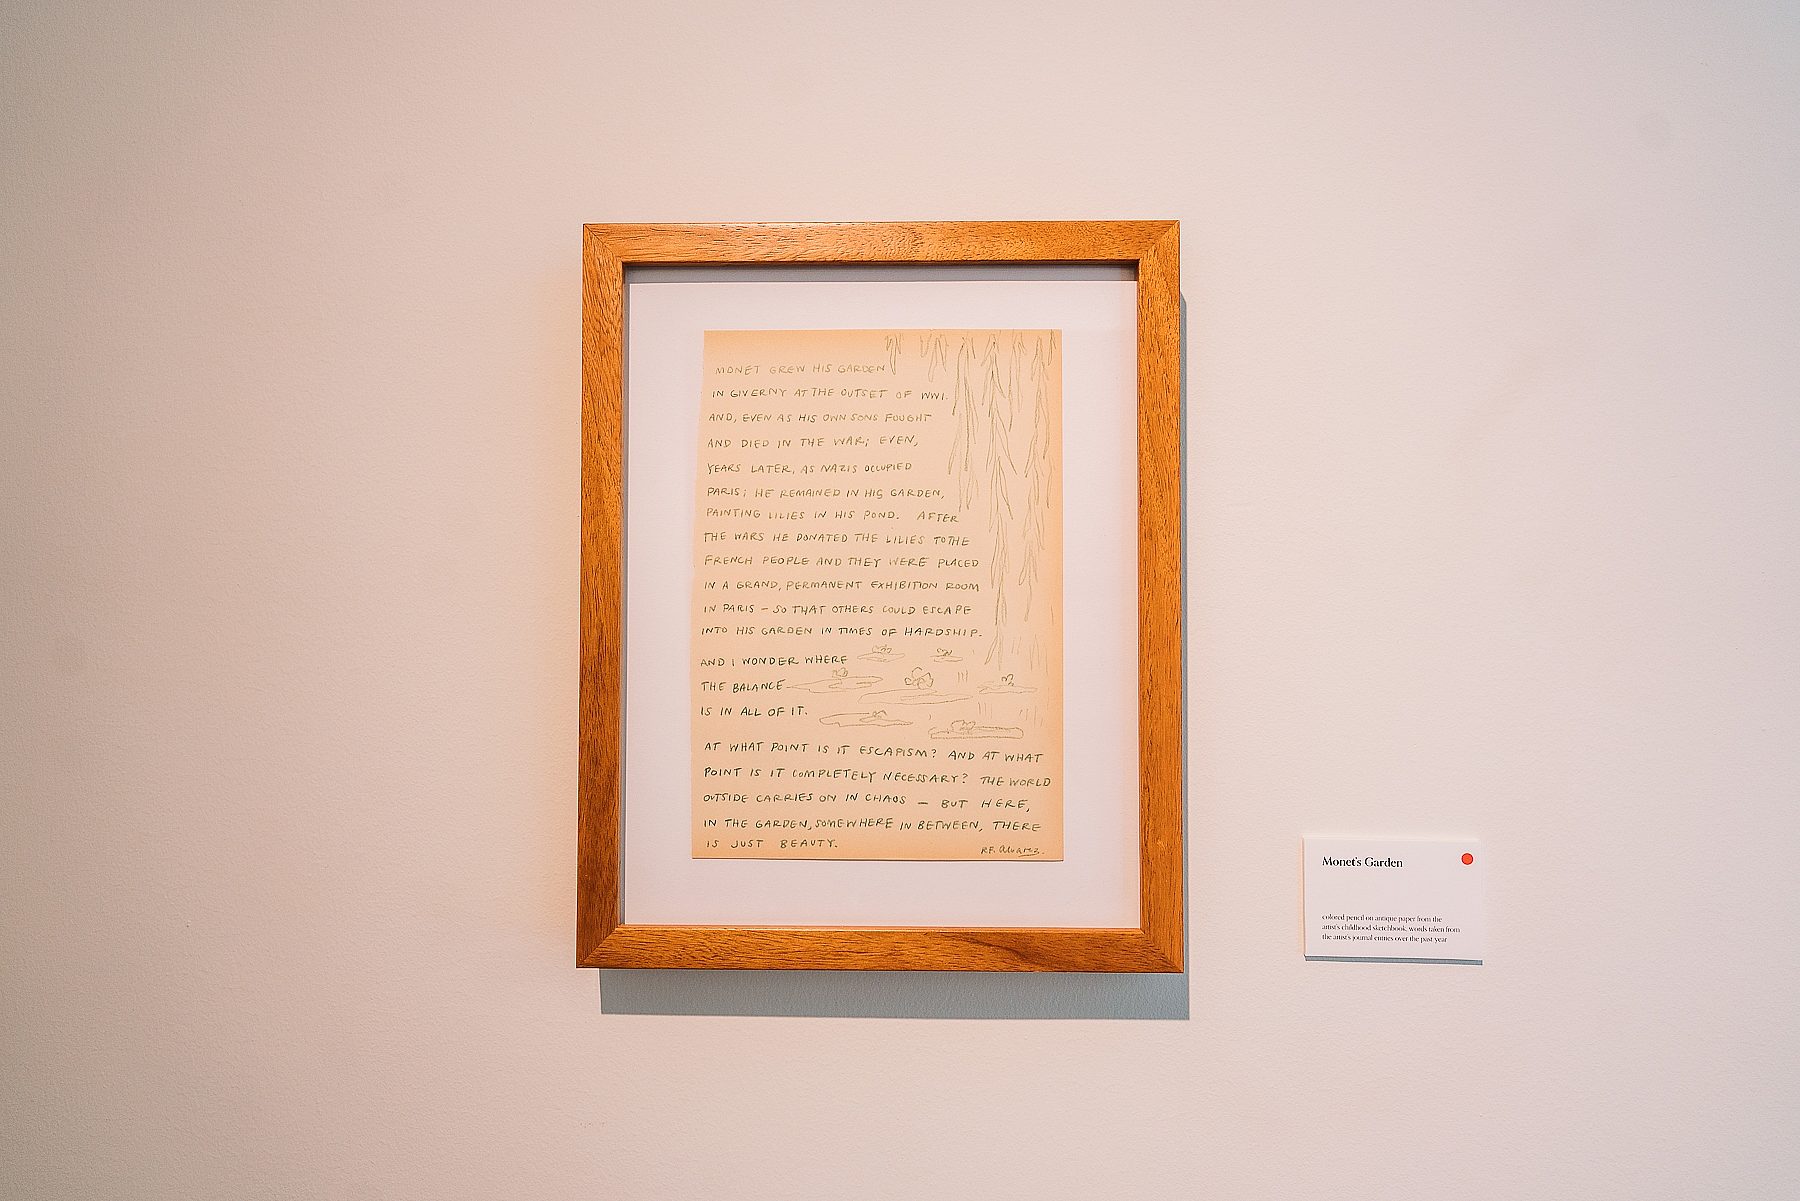 MONET GREW HIS GARDEN
IN GIVERNY AT THE OUTSET OF WWI.
AND, EVEN AS HIS OWN SONS FOUGHT
AND DIED IN THE WAR; EVEN,
YEARS LATER, AS NAZIS OCCUPIED
PARIS; HE REMAINED IN HIS GARDEN,
PAINTING LILIES IN HIS POND. AFTER
THE WARS HE DONATED THE LILIES TO THE
FRENCH PEOPLE AND THEY WERE PLACED
IN A GRAND, PERMANENT EXHIBITION ROOM
IN PARIS – SO THAT OTHERS COULD ESCAPE
INTO HIS GARDEN IN TIMES OF HARDSHIP.
AND I WONDER WHERE
THE BALANCE
IS IN ALL OF IT.
AT WHAT POINT IS IT ESCAPISM? AND AT WHAT
POINT IS IT COMPLETELY NECESSARY? THE WORLD
OUTSIDE CARRIES ON IN CHAOS – BUT HERE,
IN THE GARDEN, SOMEWHERE IN BETWEEN, THERE
IS JUST BEAUTY.
RF. Alvarez.
Monet's Garden
colored pencil on antique paper from the
artist's childhood sketchbook, words taken from
the artist's journal entries over the past year